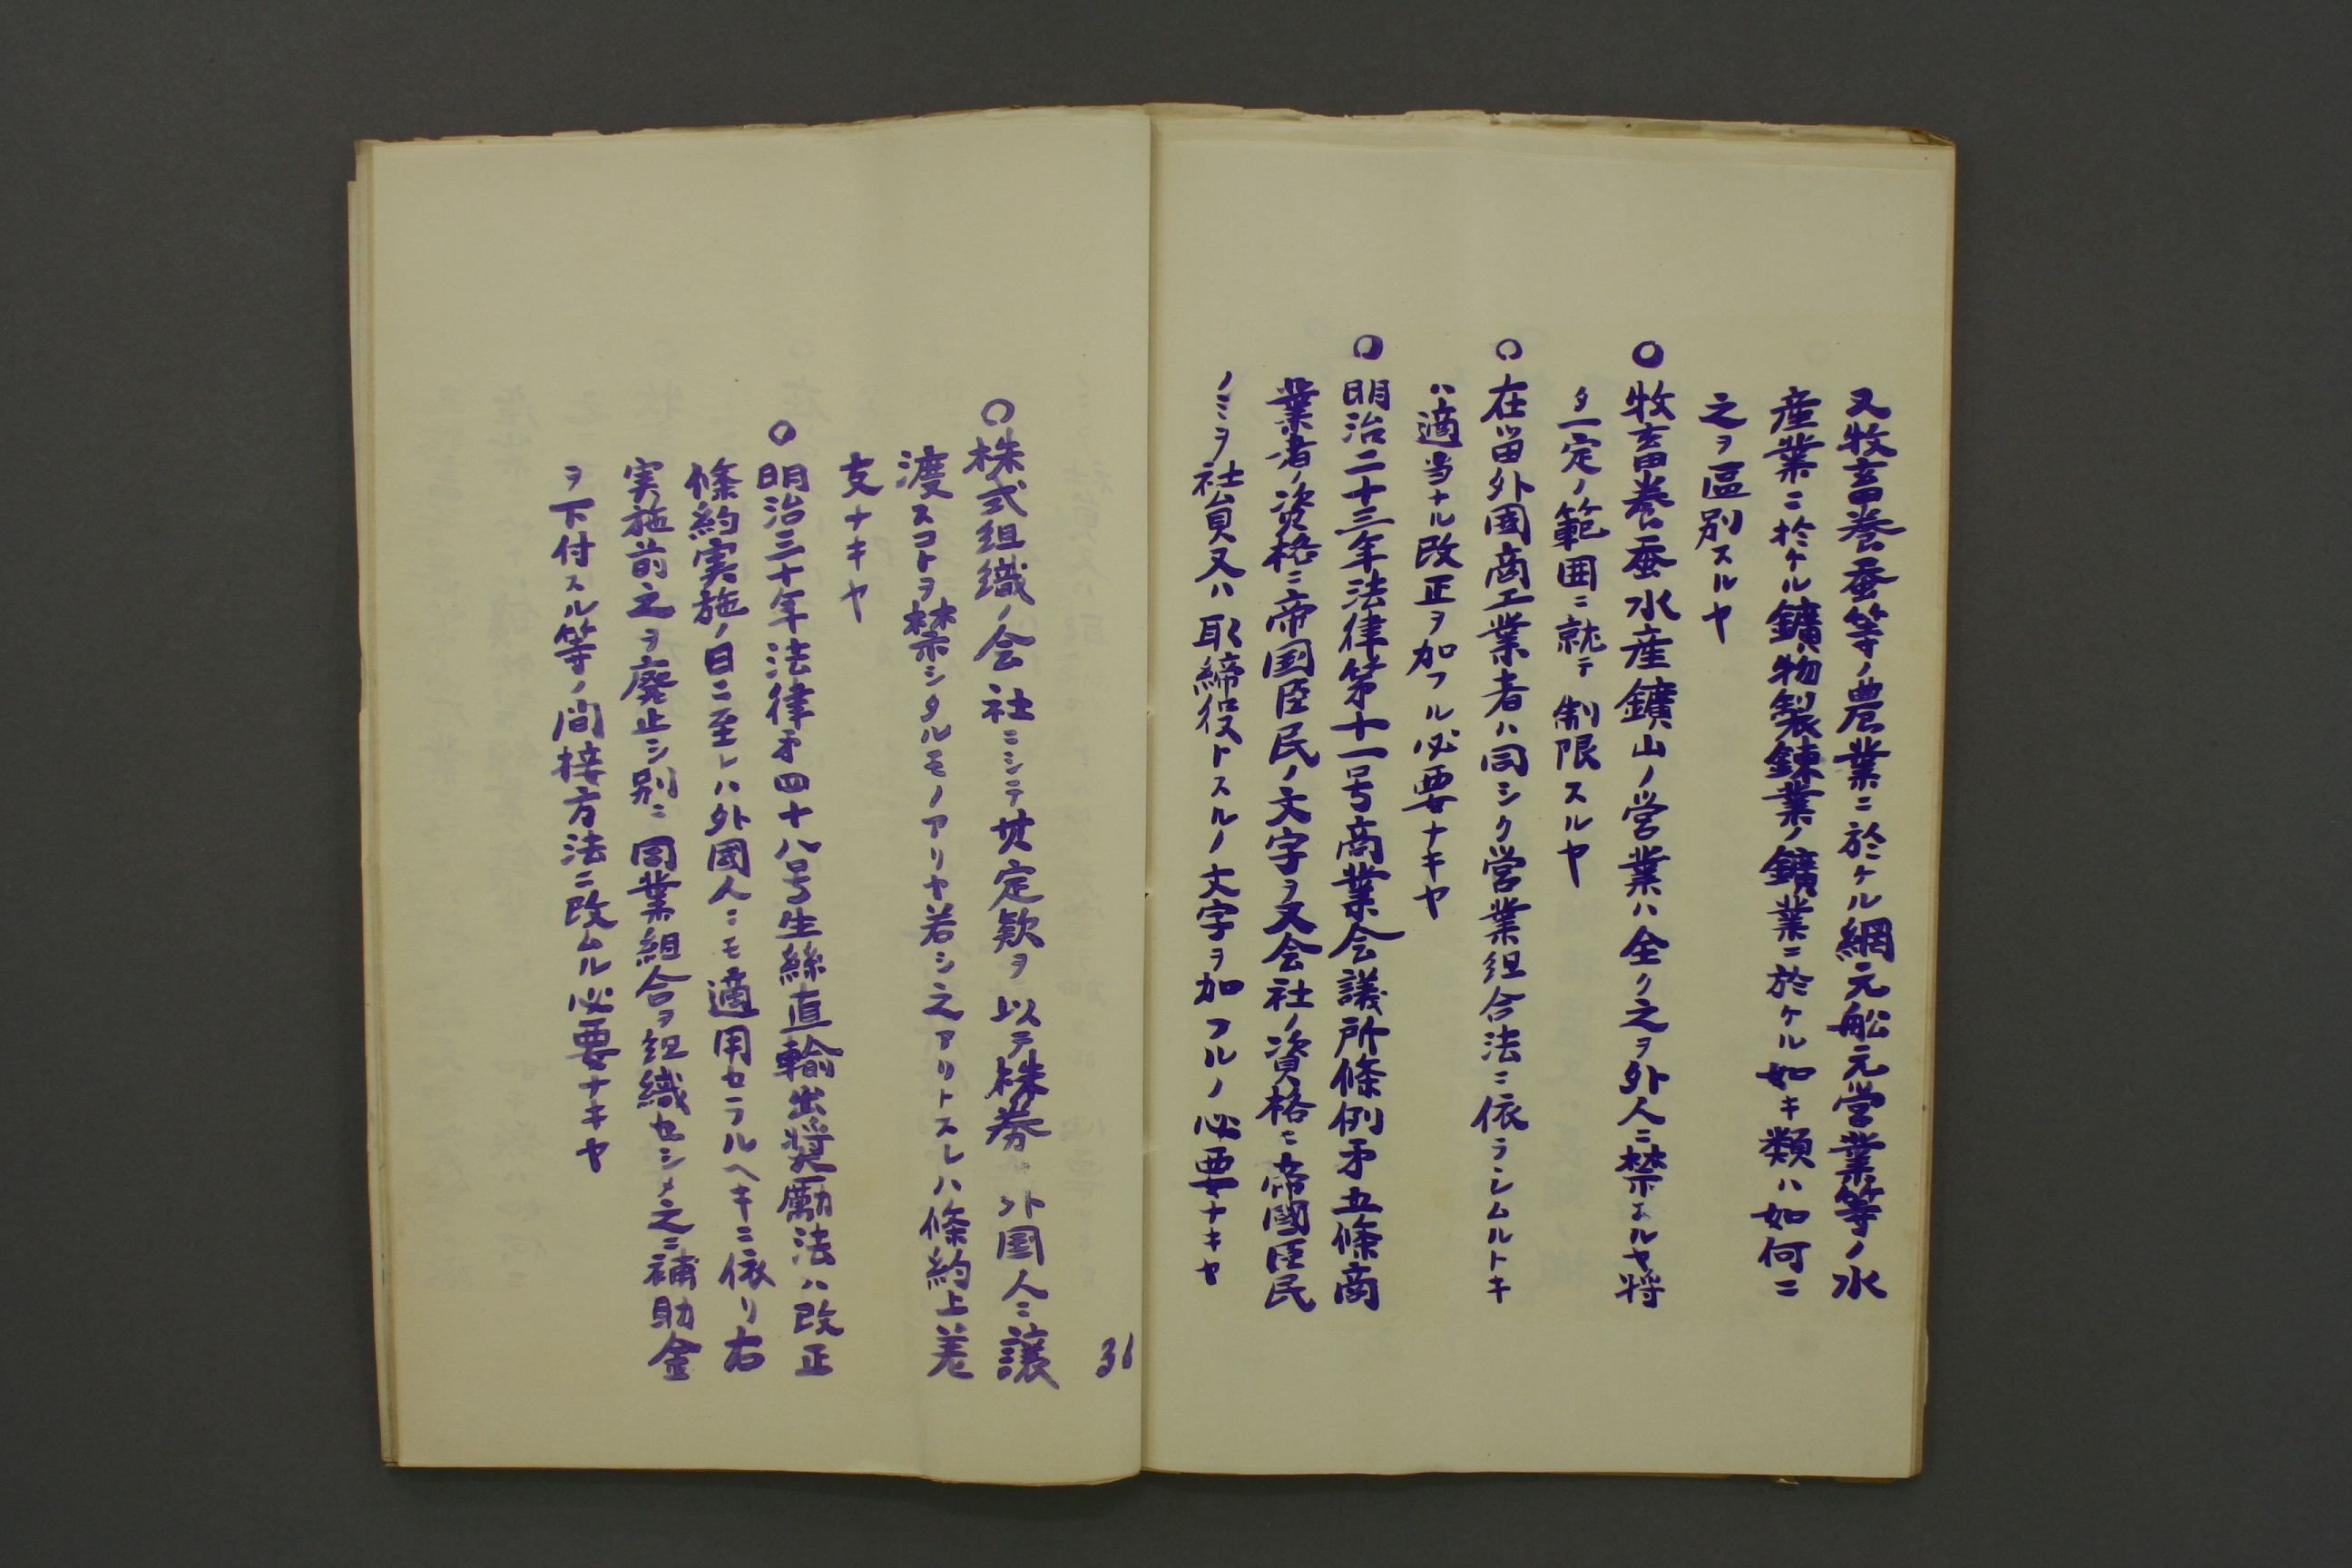 又牧畜養蚕等ノ農業ニ於ケル網元舩元営業等ノ水
産業ニ於ケル鑛物製錬業ノ鑛業ニ於ケル如キ類ハ如何ニ
之ヲ區別スルヤ
○牧畜養蚕水産鑛山ノ営業ハ全ク之ヲ外人ニ禁スルヤ将
タ一定ノ範囲ニ就テ制限スルヤ
○在留外國商工業者ハ同シク営業組合法ニ依ラシムルトキ
ハ適当ナル改正ヲ加フル必要ナキヤ
○明治二十三年法律第十一号商業会議所條例㐧五條商
業者ノ資格ニ帝国臣民ノ文字ヲ又会社ノ資格ニ帝國臣民
ノミヲ社員又ハ取締役トスルノ文字ヲ加フルノ必要ナキヤ
36
○株式組織ノ会社ニシテ其定款ヲ以テ株券 外国人ニ譲
渡スコトヲ禁シタルモノアリヤ若シ之アリトスレハ條約上差
支ナキヤ
○明治三十年法律㐧四十八号生絲直輸出奨勵法ハ改正
條約実施ノ日ニ至レハ外國人ニモ適用セラルヘキニ依リ右
実施前之ヲ廃止シ別ニ同業組合ヲ組織セシメ之ニ補助金
ヲ下付スル等ノ間接方法ニ改ムル必要ナキヤ